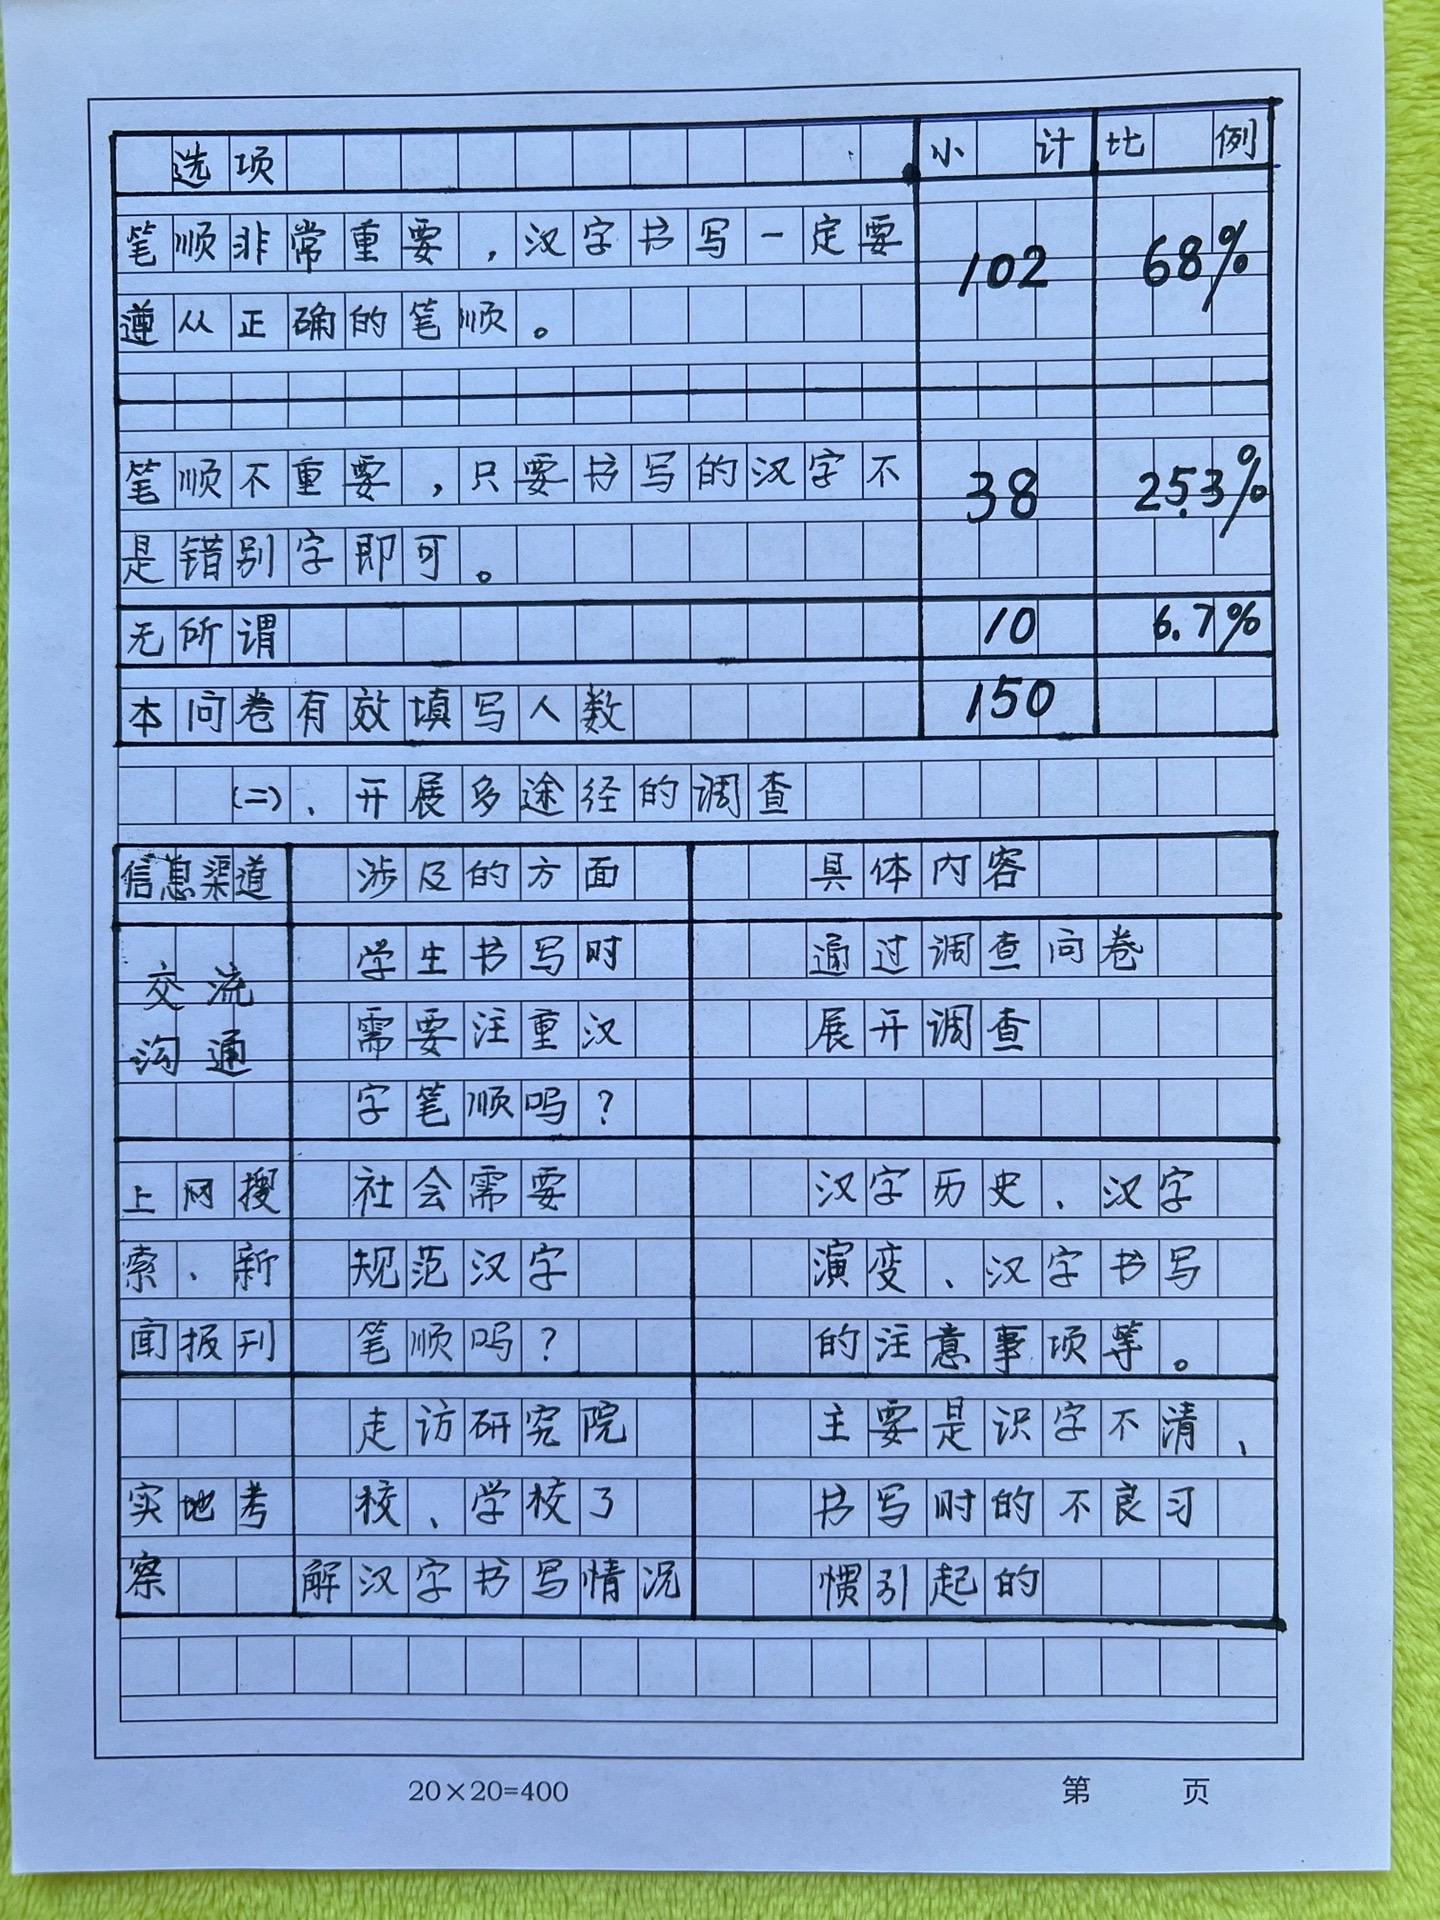 选项 小计 比例
笔顺非常重要，汉字书写一定要 102 68%
遵从正确的笔顺。
笔顺不重要，只要书写的汉字不 38 25.3%
是错别字即可。
无所谓 10 6.7%
本问卷有效填写人数 150
（二）、开展多途径的调查
信息渠道 涉及的方面 具体内容
交流 学生书写时 通过调查问卷
沟通 需要注重汉 展开调查
字笔顺吗？
上网搜 社会需要 汉字历史、汉字
索、新 规范汉字 演变、汉字书写
闻报刊 笔顺吗？ 的注意事项等。
走访研究院 主要是识字不清、
实地考 校、学校了 书写时的不良习
察 解汉字书写情况 惯引起的
20×20=400 第 页